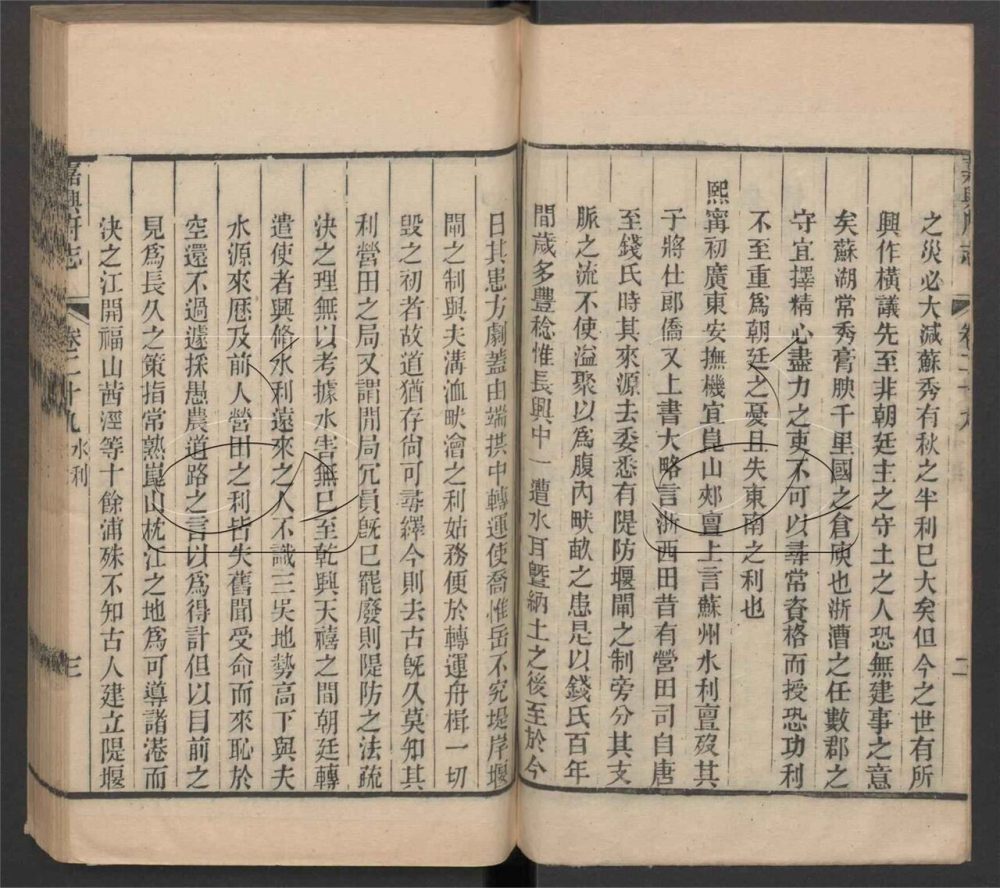 之災必大減蘇秀有秋之半利已大矣但今之世有所
興作橫議先至非朝廷主之守土之人恐無建事之意
矣蘇湖常秀膏腴千里國之倉庾也浙漕之任數郡之
守宜擇精心盡力之吏不可以尋常資格而授恐功利
不至重爲朝廷之憂且失東南之利也
熙甯初廣東安撫機宜崑山郟亶上言蘇州水利亶歿其
子將仕郎僑又上書大略言浙西田昔有營田司自唐
至錢氏時其來源去委悉有隄防堰閘之制旁分其支
脈之流不使溢聚以爲腹內畎畝之患是以錢氏百年
間歲多豐稔惟長興中一遭水耳曁納土之後至於今
日其患方劇蓋由端拱中轉運使喬惟岳不究堤岸堰
閘之制與夫溝洫畎澮之利姑務便於轉運舟楫一切
毀之初者故道猶存尙可尋繹今則去古旣久莫知其
利營田之局又謂閒局冗員旣已罷廢則隄防之法疏
決之理無以考據水害無已至乾興天禧之間朝廷轉
遣使者興脩水利遠來之人不識三吳地勢高下與夫
水源來歷及前人營田之利皆失舊聞受命而來恥於
空還不過遽採愚農道路之言以爲得計但以目前之
見爲長久之策指常熟崑山枕江之地爲可導諸港而
決之江開福山茜涇等十餘浦殊不知古人建立隄堰
嘉興府志
卷二十九
水利
三